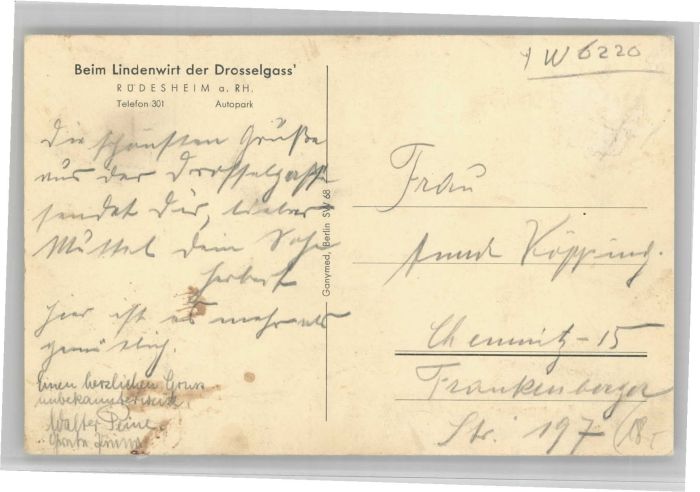 Beim Lindenwirt der Drosselgass'
RÜDESHEIM a. RH.
Telefon 301 Autopark
Die schönsten Grüße
aus der Drosselgasse
sendet Dir, lieber
Muttel dein Sohn
Herbert
hier ist es mehr als
gemütlich.
Einen herzlichen Gruss
unbekannterweise
Walter Peine
Ganymed, Berlin SW 68
W 6220
Frau
Köpping.
Chemnitz-15
Frankenberger
Str. 197